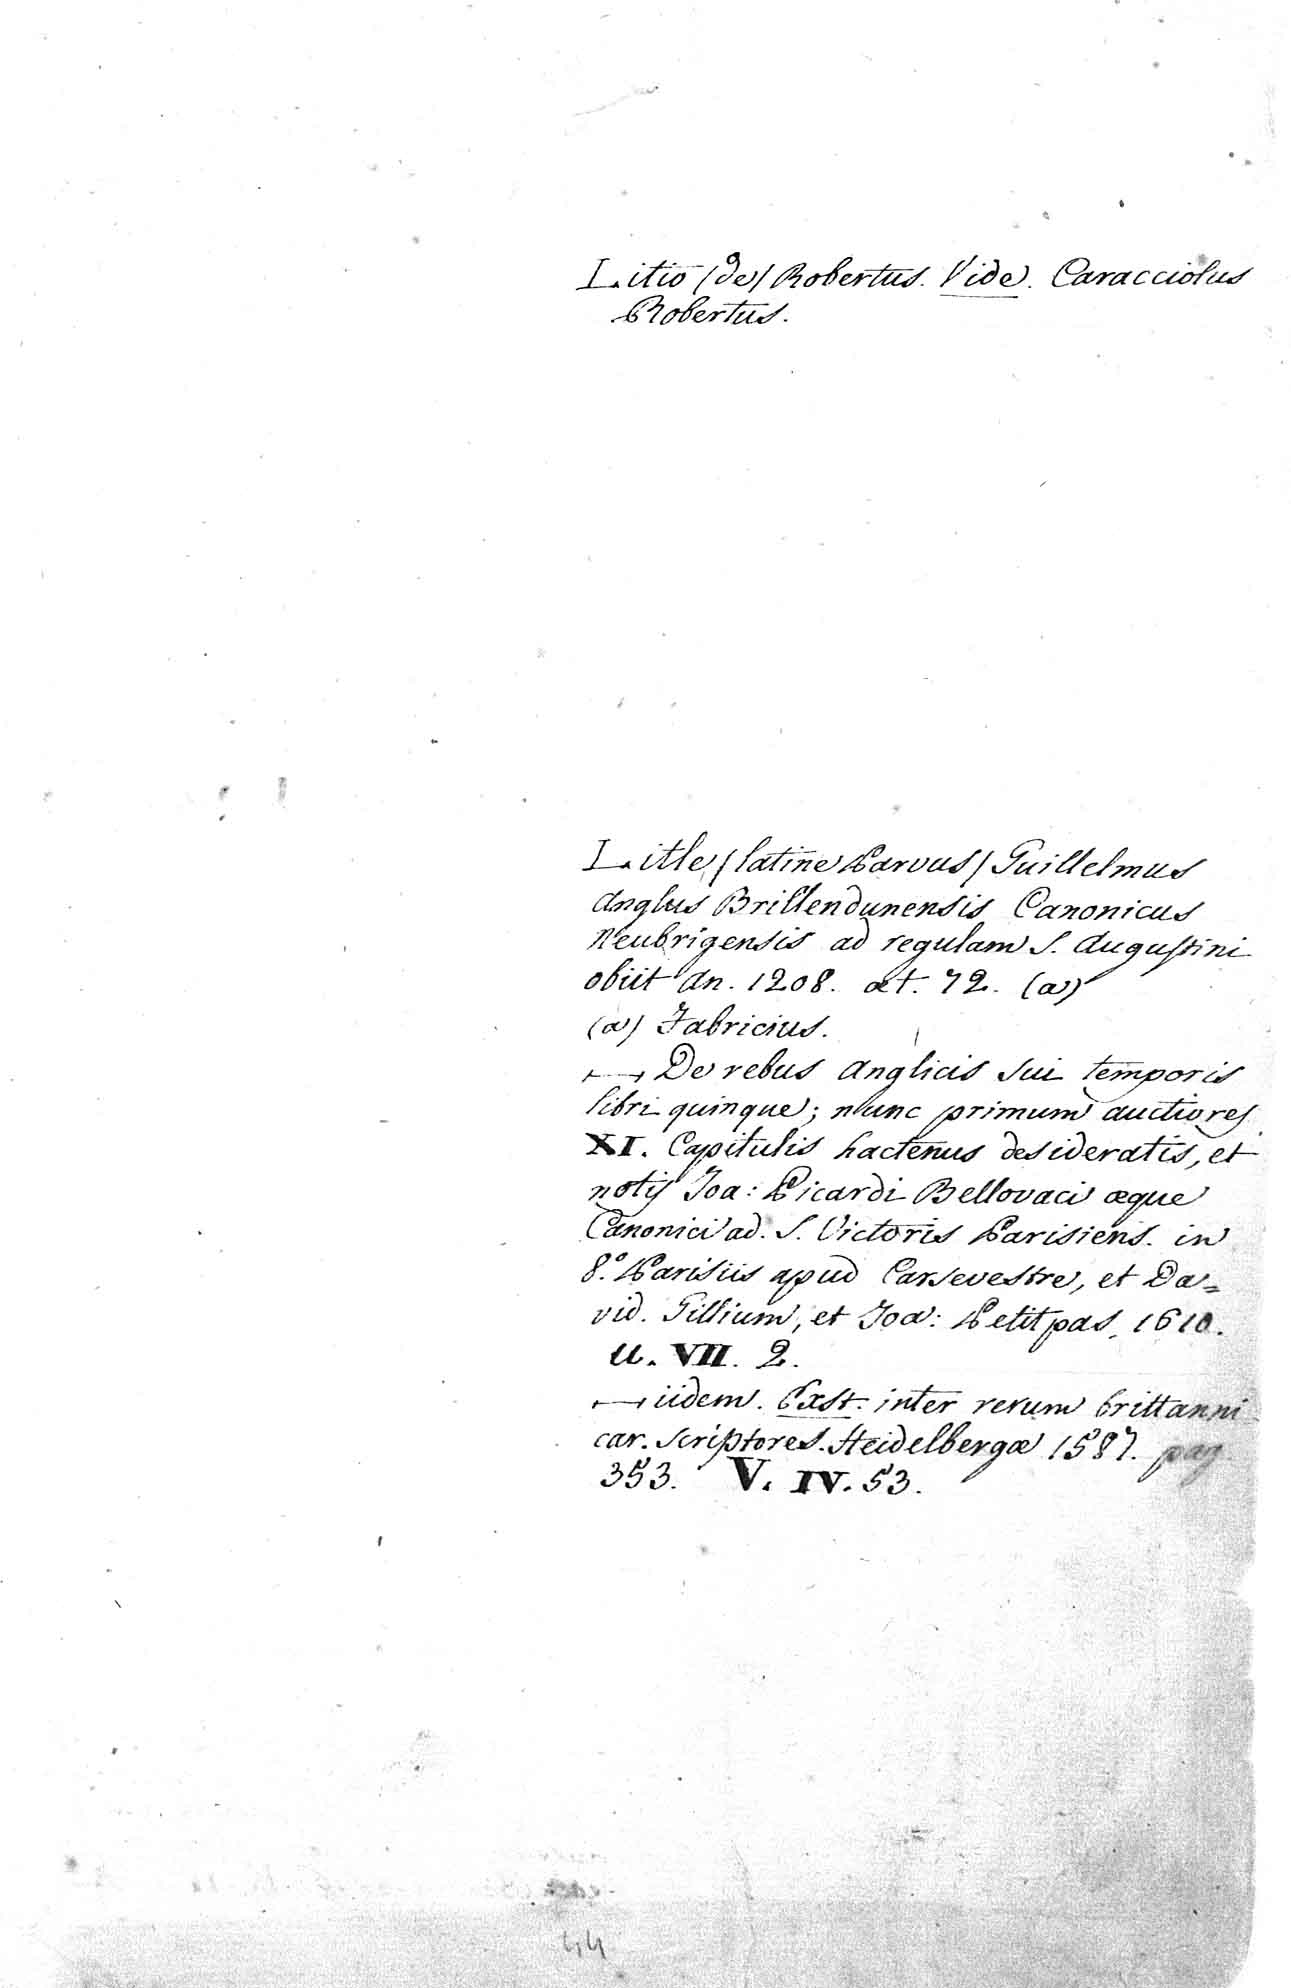 Litio (de) Robertus. Vide. Caracciolus
Robertus.
Litle (latine Parvus) Guillelmus
Anglus Brillendunensis Canonicus
Neubrigensis ad regulam S. Augustini
obiit An. 1208. æt. 72. (a)
(a) Fabricius.
⟼ De rebus Anglicis sui temporis
libri quinque; nunc primum auctiores
XI. Capitulis hactenus desideratis, et
notis Joa: Picardi Bellovaci æque
Canonici ad. S. Victoris Parisiens. in
8.º Parisiis apud Carsevestre, et Da=
vid. Gillium, et Joa: Petitpas, 1610.
U. VII. 2.
⟼ iidem. Exst. inter rerum brittanni
car. scriptores. Heidelbergæ 1587. pag
353. V. IV. 53.
44